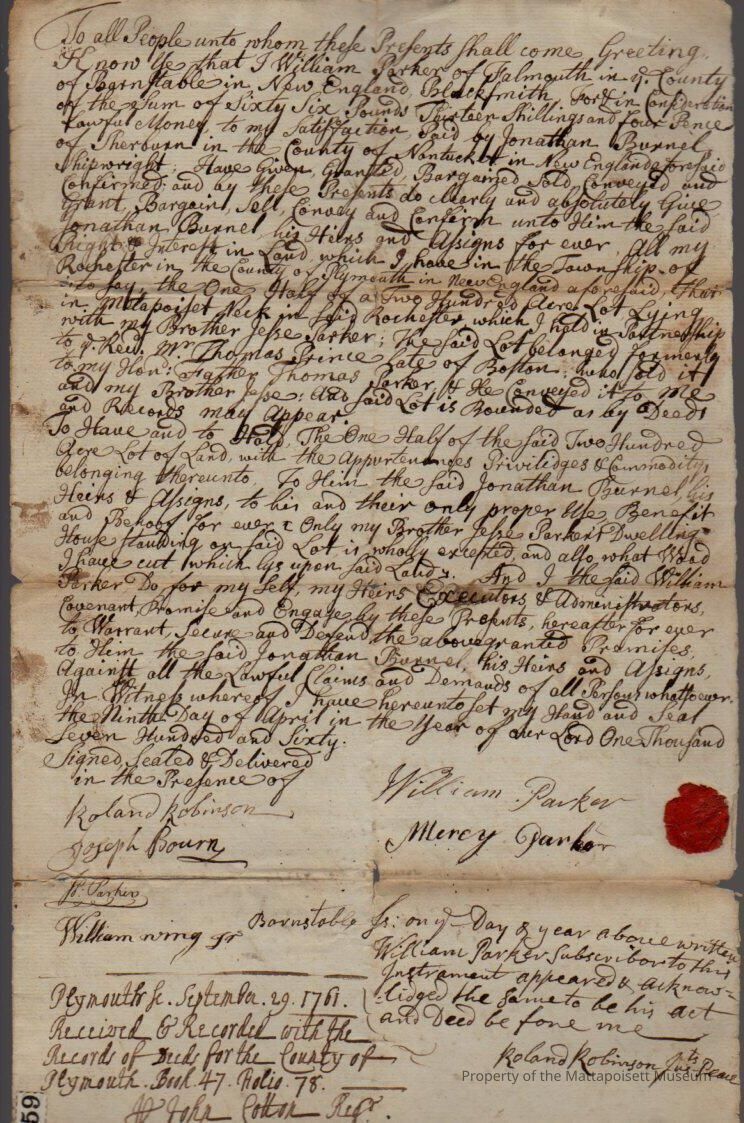 To all People unto whom these Presents shall come, Greeting.
Know Ye that I William Parker of Falmouth in ye. County
of Barnstable in New England, Blacksmith, For & in Consideration
of the Sum of Sixty Six Pounds Thirteen Shillings and four Pence
Lawful Money, to my Satisfaction, Paid by Jonathan Burnel
of Sherburn in the County of Nantucket in New England aforesaid
Shipwright; Have Given, Granted, Bargained Sold, Conveyed and
Confirmed: and by these Presents do clearly and absolutely Give
Grant, Bargain, Sell, Convey and Confirm unto Him the said
Jonathan Burnel, his Heirs and Assigns for ever All my
Right & Interest in Land, which I have in the Township of
Rochester in the County of Plymouth in New England aforesaid, that
is to say, the One Half of a Two Hundred Acre Lot Lying
in Matapoiset Neck in said Rochester which I held in Partnership
with my Brother Jesse Parker; the said Lot belonged formerly
to ye. Revd. Mr. Thomas Prince late of Boston; who sold it
to my Hon: Father Thomas Parker, & He Conveyed it to Me
and my Brother Jesse: And said Lot is Bounded as by Deeds
and Records may Appear.
To Have and to Hold, The One Half of the said Two Hundred
Acre Lot of Land, with the Appurtenances Privilidges & Commoditys
belonging thereunto, To Him the said Jonathan Burnel, his
Heirs & Assigns, to his and their only proper Use Benefit
and Behoof for ever: Only my Brother Jesse Parker's Dwelling
House standing on said Lot is wholly excepted, and also what Wood
I have cut which lys upon said Land. And I the said William
Parker Do for my self, my Heirs Executors & Administrators,
Covenant, Promise and Engage by these Presents, hereafter for ever
to Warrant, Secure and Defend the abovegranted Premises,
to Him the said Jonathan Burnel, his Heirs and Assigns,
Against all the Lawful Claims and Demands of all Persons whatsoever.
In Witness whereof I have hereunto set my Hand and Seal
the Ninth Day of April in the Year of our Lord One Thousand
Seven Hundred and Sixty.
Signed, Sealed & Delivered
in the Presence of
Roland Robinson
Joseph Bourn
William Parker
Mercy Parker
Parker
William wing Jr
Barnstable Ss: on ye Day & year above written
William Parker Subscribor to this
Instrament appeared & acknow=
lidged the same to be his act
and Deed be fore me
Roland Robinson Jus:ts Peace
Plymouth Sc. September. 29. 1761.
Received & Recorded with the
Records of Deeds for the County of
Plymouth. Book. 47. Folio. 78.
John Cotton Regr.
Property of the Mattapoisett Museum
59